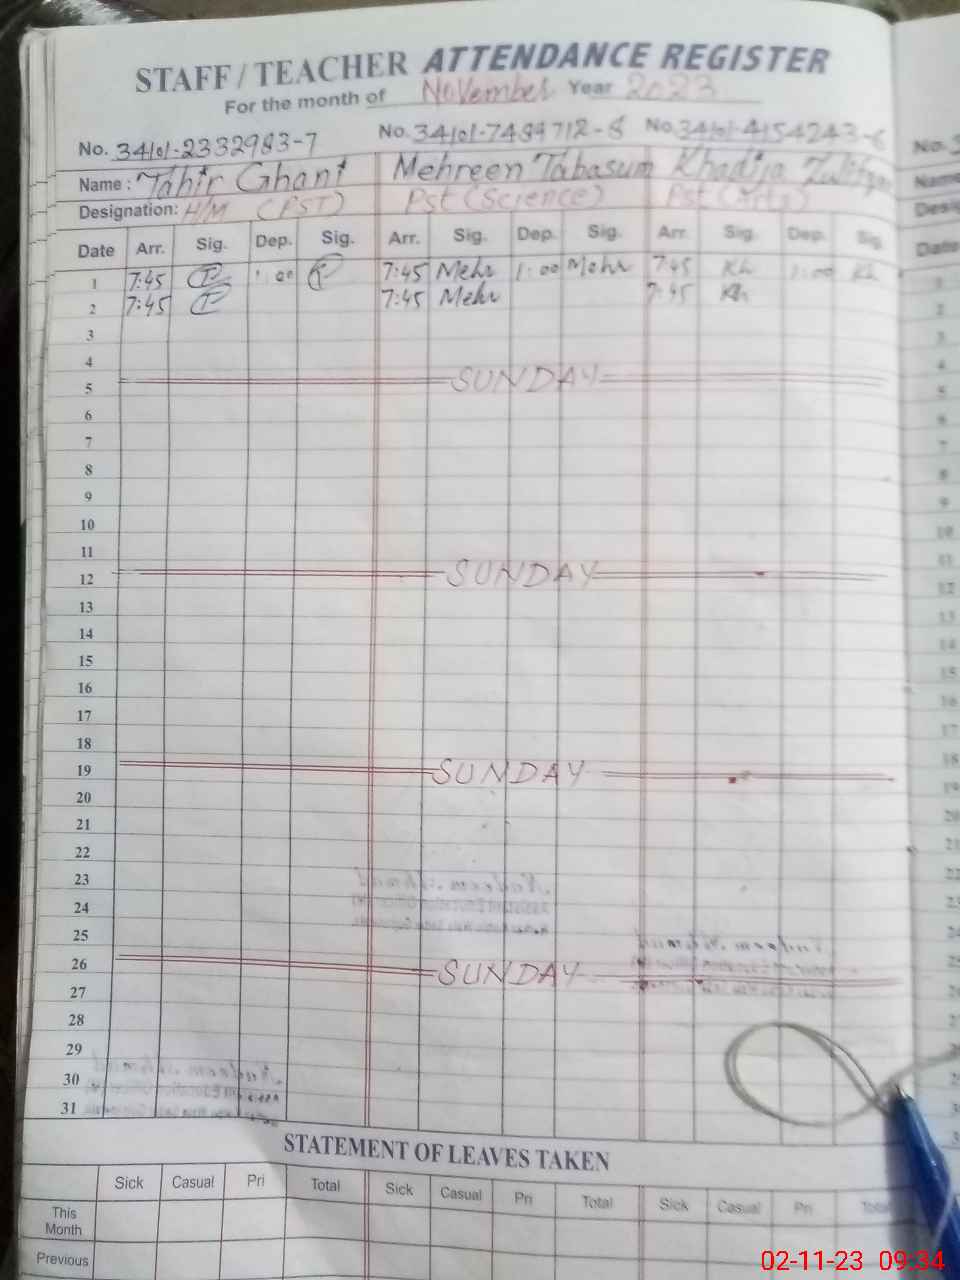 STAFF / TEACHER ATTENDANCE REGISTER
For the month of November Year 2023
No. 34101-2332983-7 No. 34101-7489712-8 No. 34101-4154243-6
Name : Tahir Ghani Mehreen Tabasum Khadija
Designation: H/M (PST) Pst (Science) Pst (Arts)
Date Arr. Sig. Dep. Sig. Arr. Sig. Dep. Sig. Arr. Sig. Dep. Sig.
1 7:45 1:00 7:45 Mehr 1:00 Mehr 7:45 Kh 1:00 Kh
2 7:45 7:45 Mehr 7:45 Kh
3
4
5 SUNDAY
6
7
8
9
10
11
12 SUNDAY
13
14
15
16
17
18
19 SUNDAY
20
21
22
23
24
25
26 SUNDAY
27
28
29
30
31
STATEMENT OF LEAVES TAKEN
Sick Casual Pri Total Sick Casual Pri Total Sick Casual Pri Total
This
Month
Previous
02-11-23 09:34